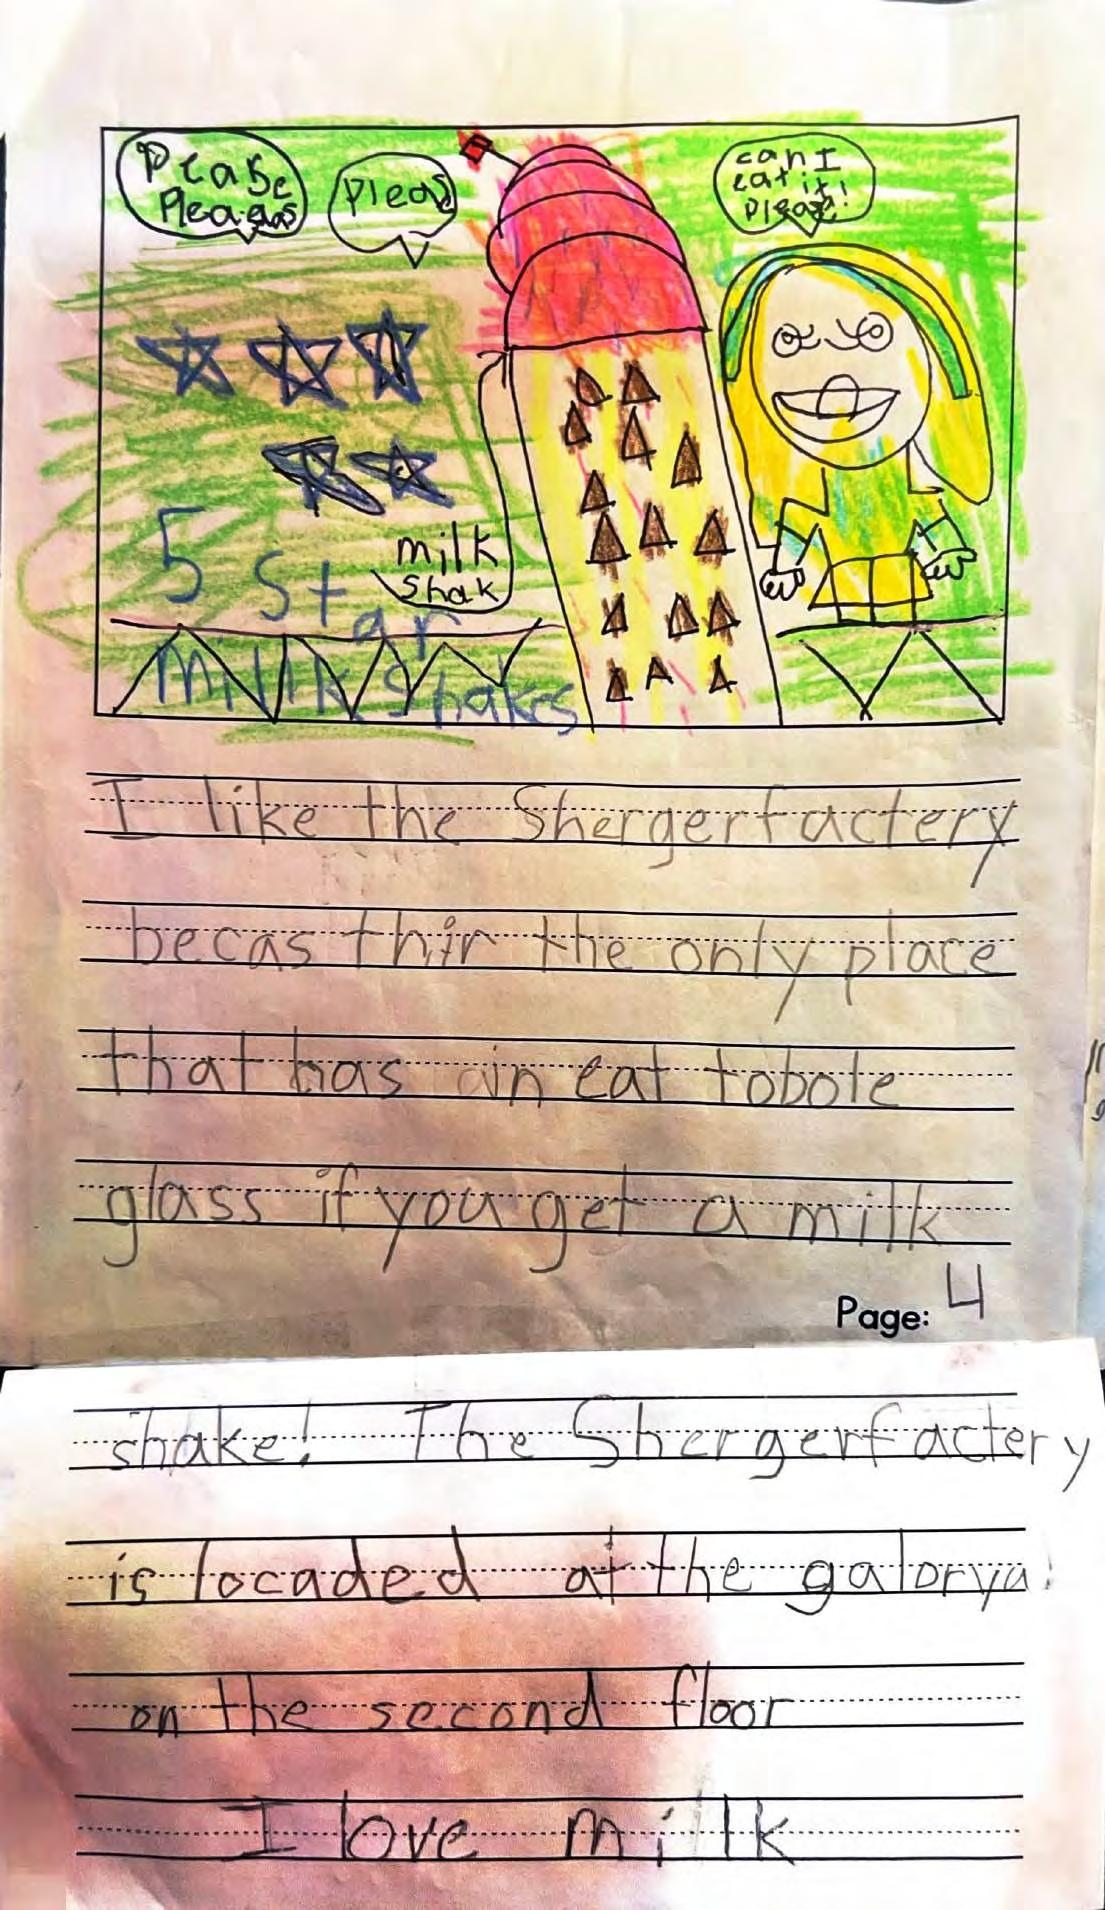 Please
Pleaeas
Pleas
can I
eat it
please!
milk
Shak
5 Star
Milk Shakes
I like the Shergerfactery
becas thir the only place
that has an eat tobole
glass if you get a milk
Page: 4
shake! The Shergerfactery
is locaded at the galorya.
on the second floor
I love milk